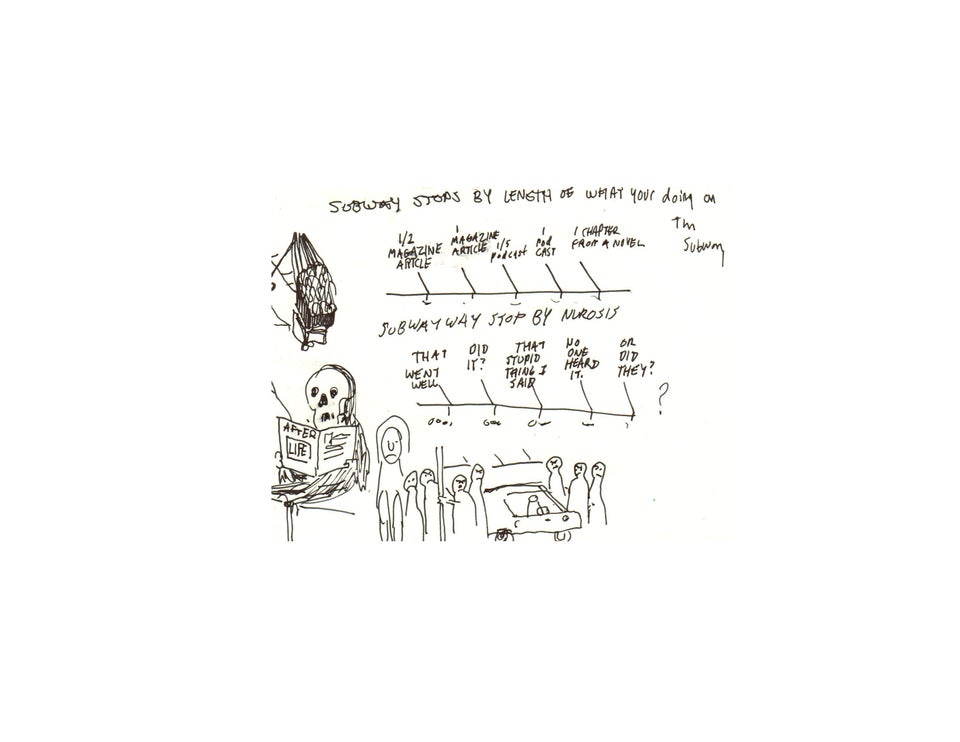 SUBWAY STOPS BY LENGTH OF WHAT YOUR doing on
Subway
1/2
MAGAZINE
ARTICLE
1
MAGAZINE
ARTICLE
1/5
podcast
1
POD
CAST
1 CHAPTER
FROM A NOVEL
SUBWAY WAY STOP BY NUROSIS
THAT
WENT
WELL
DID
IT?
THAT
STUPID
THING I
SAID
NO
ONE
HEARD
IT.
OR
DID
THEY?
?
AFTER
LIFE